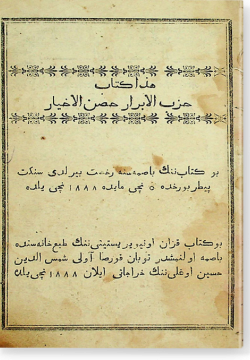 هذا كتاب
حزب الابرار حصن الاخيار
بو كتاب‌ننگ باصمه‌سنه رخصت بيرلدى سنكت
پيطربورخده ٥ نچى مايده ١٨٨٨ نچى يلده
بوكتاب قزان اونيويرسيتيتى‌ننگ طبع‌خانه‌سنده
باصمه اولنمشدر توبان قورصا آولى شمس الدين
حسين اوغلى‌ننگ خراجاتى ايلان ١٨٨٨ نچى يلده